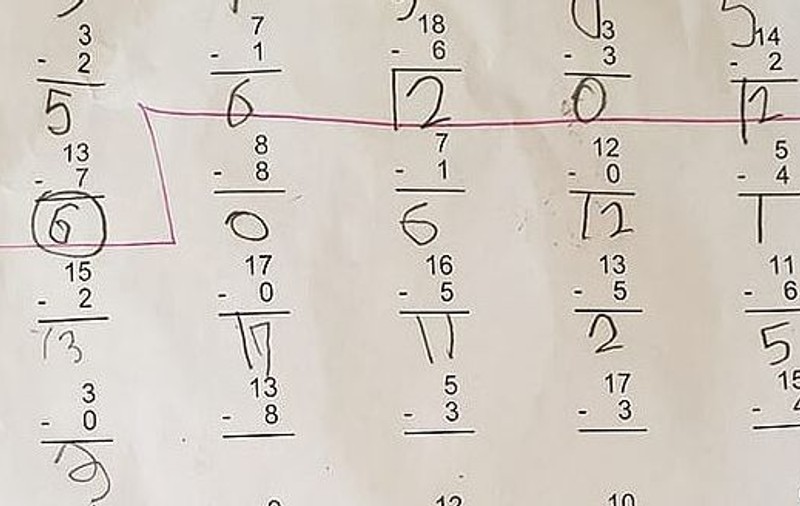 3 7 18 3 14
- 2 - 1 - 6 - 3 - 2
5 6 12 0 12
13 8 7 12 5
- 7 - 8 - 1 - 0 - 4
6 0 6 12 1
15 17 16 13 11
- 2 - 0 - 5 - 5 - 6
13 17 11 2 5
3 13 5 17 15
- 0 - 8 - 3 - 3 - 4
3
12 10